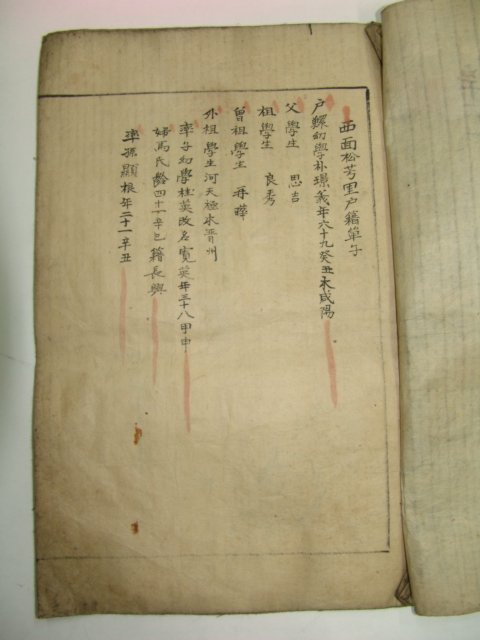 西面松芳里户籍單子
户 幼學朴璟義年六十九癸丑本咸陽
父學生 思吉
祖學生 良秀
曾祖學生 再
外祖學生河天極本晋州
率子幼學桂英改名寛英年三十八甲申
婦馬氏齡四十一辛巳籍長興
率孫顯根年二十一辛丑